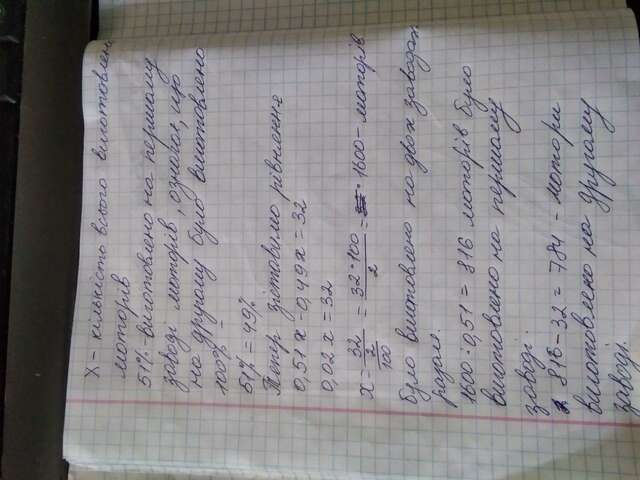 X - кількість всього виготовлен
моторів
51% - виготовлено на першому
заводі моторів, означає, що
на другому було виготовлено
100% -
51% = 49%
Тепер зготовимо рівняння
0,51x - 0,49x = 32
0,02x = 32
x = 32 / (2/100) = 32·100 / 2 = 1600 - моторів
було виготовлено на двох заводах
разом.
1600·0,51 = 816 моторів було
виготовлено на першому
заводі
816 - 32 = 784 - мотори
виготовлено на другому
заводі.